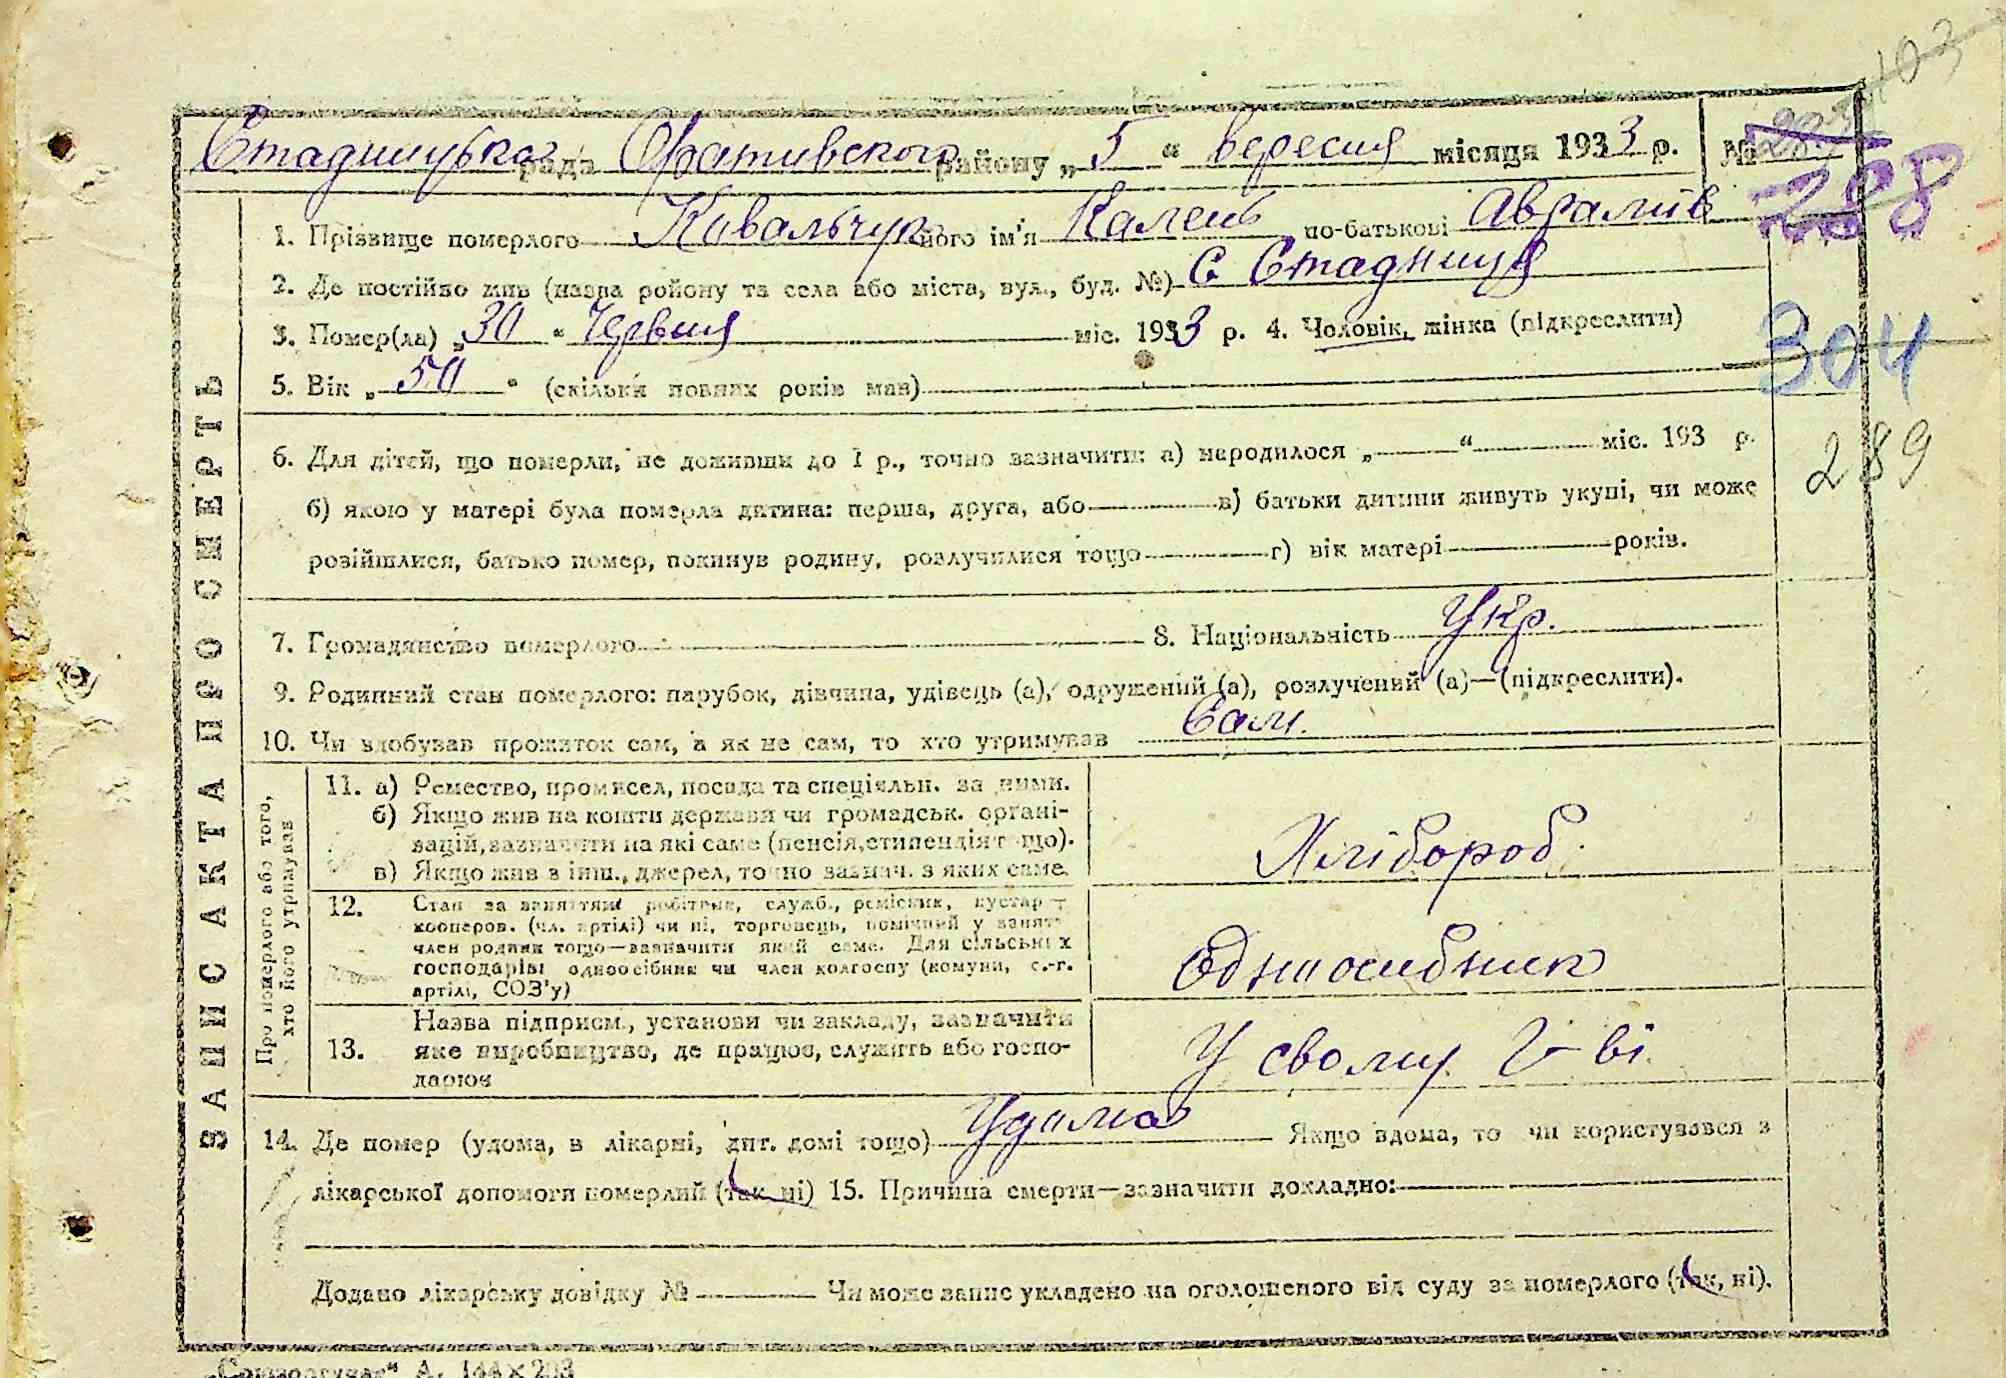 103
Стадницька рада Оратівського району „5“ вересня місяця 1933 р. №
288
1. Прізвище померлого Ковальчук його ім'я Калень по-батькові Аврамів
2. Де постійно жив (назва району та села або міста, вул., буд. №) с Стадниця
3. Помер(ла) „30“ Червня міс. 1933 р. 4. Чоловік, жінка (підкреслити)
304
5. Вік „50“ (скільки повних років мав)
6. Для дітей, що померли, не доживши до 1 р., точно зазначити: а) народилося „ “ міс. 193 р.
289
б) якою у матері була померла дитина: перша, друга, або в) батьки дитини живуть укупі, чи може
розійшлися, батько помер, покинув родину, розлучилися тощо г) вік матері років.
7. Громадянство померлого 8. Національність Укр.
9. Родинний стан померлого: парубок, дівчина, удівець (а), одружений (а), розлучений (а)—(підкреслити).
10. Чи здобував прожиток сам, а як не сам, то хто утримував Сам.
ЗАПИС АКТА ПРО СМЕРТЬ
Про померлого або того,
хто його утримував
11. а) Ремество, промисел, посада та спеціяльн. за ними.
б) Якщо жив на кошти держави чи громадськ. органі-
зацій, зазначити на які саме (пенсія, стипендія тощо).
в) Якщо жив з інш., джерел, точно зазнач. з яких саме.
Хлібороб.
12. Стан за заняттям робітник, служб., ремісник, кустар
кооперов. (чл. артілі) чи ні, торговець, помічний у занят.
член родини тощо—зазначити який саме. Для сільських
господарів: одноосібник чи член колгоспу (комуни, с.-г.
артілі, СОЗ'у)
Одноосибник
13. Назва підприєм., установи чи закладу, зазначити
яке виробництво, де працює, служить або госпо-
дарює
У свому г-ві.
14. Де помер (удома, в лікарні, дит. домі тощо) Удома Якщо вдома, то чи користувався з
лікарської допомоги померлий (так, ні) 15. Причина смерти—зазначити докладно:
Додано лікарську довідку № Чи може запис укладено на оголошеного від суду за померлого (так, ні).
А. 144×203